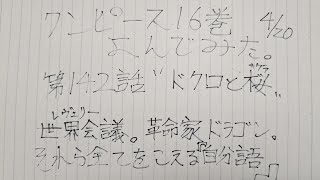 ワンピース16巻 4/20
よんでみた。
第142話“ドクロと桜”
サクラ
レヴェリー
世界会議。革命家ドラゴン。
それら全てをこえる自分語り